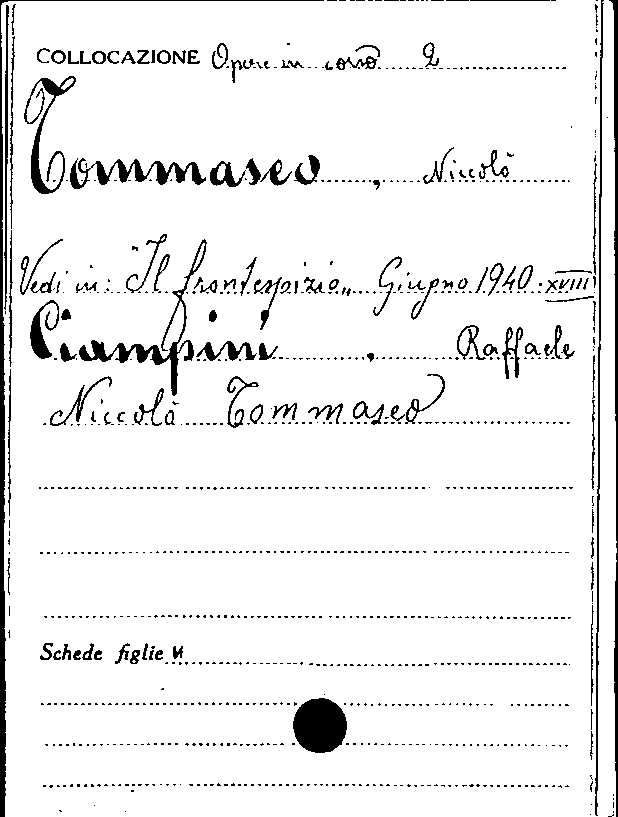 COLLOCAZIONE Opere in corso 2
Tommaseo, Niccolò
Vedi in: "Il frontespizio" Giugno 1940-XVIII
Ciampini, Raffaele
Niccolò Tommaseo
Schede figlie N